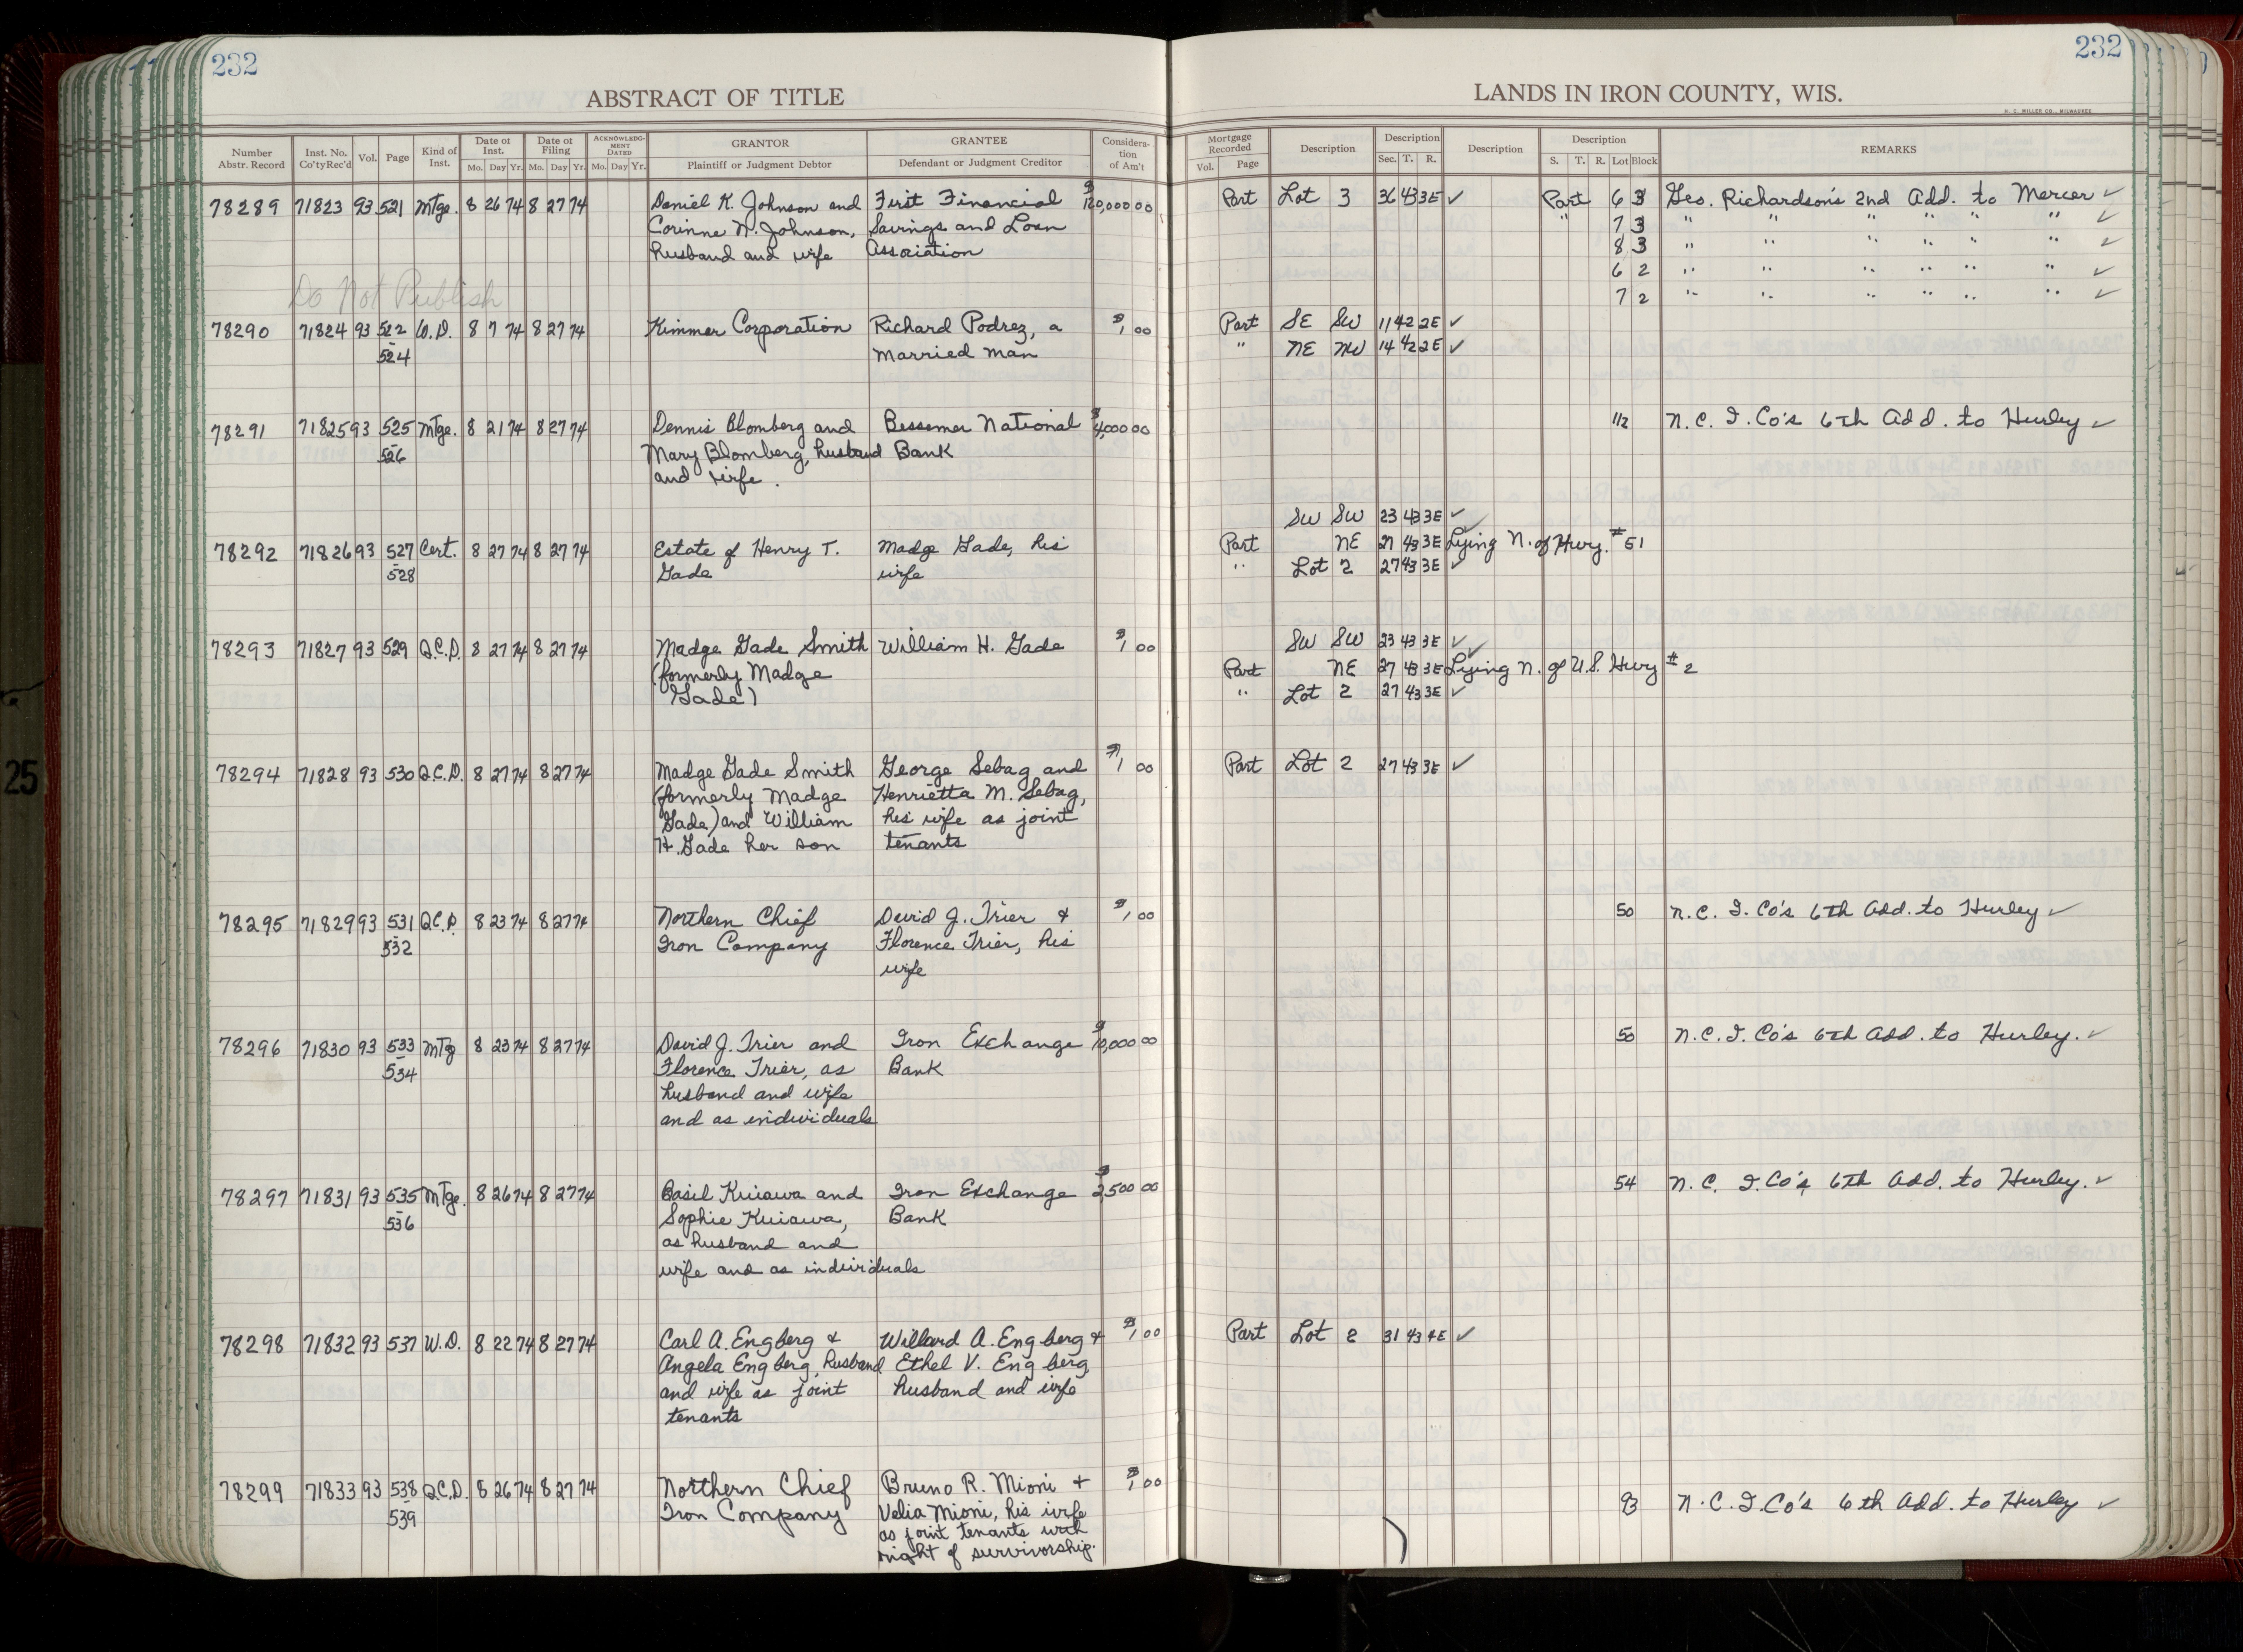 232
ABSTRACT OF TITLE
Number Abstr. Record Inst. No. Co'ty Rec'd Vol. Page Kind of Inst. Date of Inst. Mo. Day Yr. Date of Filing Mo. Day Yr. ACKNOWLEDGMENT DATED Mo. Day Yr. GRANTOR Plaintiff or Judgment Debtor GRANTEE Defendant or Judgment Creditor Consideration of Am't
78289 71823 93 521 Mtge. 8 26 74 8 27 74 Daniel K. Johnson and First Financial $120,000 00
Corinne N. Johnson, Savings and Loan
husband and wife Association
Do Not Publish
78290 71824 93 522 W.D. 8 7 74 8 27 74 Kimmer Corporation Richard Podrez, a $1,00
524 married man
78291 71825 93 525 Mtge. 8 21 74 8 27 74 Dennis Blomberg and Bessemer National $4,000 00
526 Mary Blomberg, husband Bank
and wife.
78292 71826 93 527 Cert. 8 27 74 8 27 74 Estate of Henry T. Madge Gade, his
528 Gade wife
78293 71827 93 529 Q.C.D. 8 27 74 8 27 74 Madge Gade Smith William H. Gade $1,00
(formerly Madge
Gade)
78294 71828 93 530 Q.C.D. 8 27 74 8 27 74 Madge Gade Smith George Sebag and $1,00
(formerly Madge Henrietta M. Sebag,
Gade) and William his wife as joint
H. Gade her son tenants
78295 71829 93 531 Q.C.D. 8 23 74 8 27 74 Northern Chief David J. Trier & $1,00
532 Iron Company Florence Trier, his
wife
78296 71830 93 533 Mtg 8 23 74 8 27 74 David J. Trier and Iron Exchange $10,000 00
534 Florence Trier, as Bank
husband and wife
and as individuals
78297 71831 93 535 Mtge. 8 26 74 8 27 74 Basil Kuiawa and Iron Exchange $2,500 00
536 Sophie Kuiawa, Bank
as husband and
wife and as individuals
78298 71832 93 537 W.D. 8 22 74 8 27 74 Carl A. Engberg & Willard A. Engberg & $1,00
Angela Engberg, husband Ethel V. Engberg,
and wife as joint husband and wife
tenants
78299 71833 93 538 Q.C.D. 8 26 74 8 27 74 Northern Chief Bruno R. Mioni & $1,00
539 Iron Company Velia Mioni, his wife
as joint tenants with
right of survivorship.
232
LANDS IN IRON COUNTY, WIS.
H. C. MILLER CO., MILWAUKEE
Mortgage Recorded Vol. Page Description Description Sec. T. R. Description Description S. T. R. Lot Block REMARKS
Part Lot 3 36 43 3E ✓ Part 6 3 Geo. Richardson's 2nd Add. to Mercer ✓
" 7 3 " " " " " " ✓
8 3 " " " " " " ✓
6 2 " " " " " " ✓
7 2 " " " " " " ✓
Part SE SW 11 42 2E ✓
" NE NW 14 42 2E ✓
112 N. C. I. Co's 6th Add. to Hurley ✓
SW SW 23 43 3E ✓
Part NE 27 43 3E Lying N. of Hwy. #51
" Lot 2 27 43 3E ✓
SW SW 23 43 3E ✓
Part NE 27 43 3E Lying N. of U.S. Hwy #2
" Lot 2 27 43 3E ✓
Part Lot 2 27 43 3E ✓
50 N. C. I. Co's 6th Add. to Hurley ✓
50 N. C. I. Co's 6th Add. to Hurley. ✓
54 N. C. I. Co's 6th Add. to Hurley. ✓
Part Lot 2 31 43 4E ✓
93 N. C. I. Co's 6th Add. to Hurley ✓
25